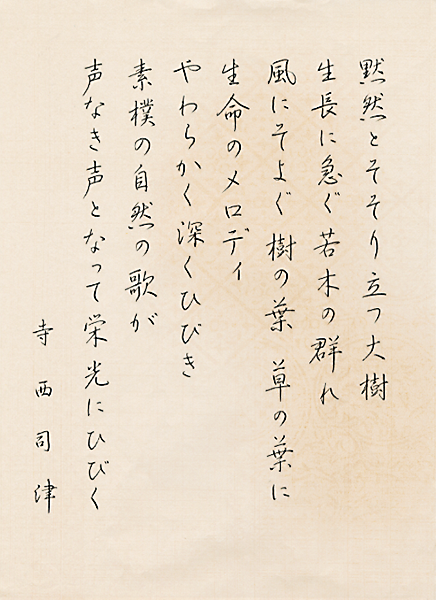 黙然とそそり立つ大樹
生長に急ぐ若木の群れ
風にそよぐ樹の葉 草の葉に
生命のメロディ
やわらかく深くひびき
素樸の自然の歌が
声なき声となって栄光にひびく
寺西司津